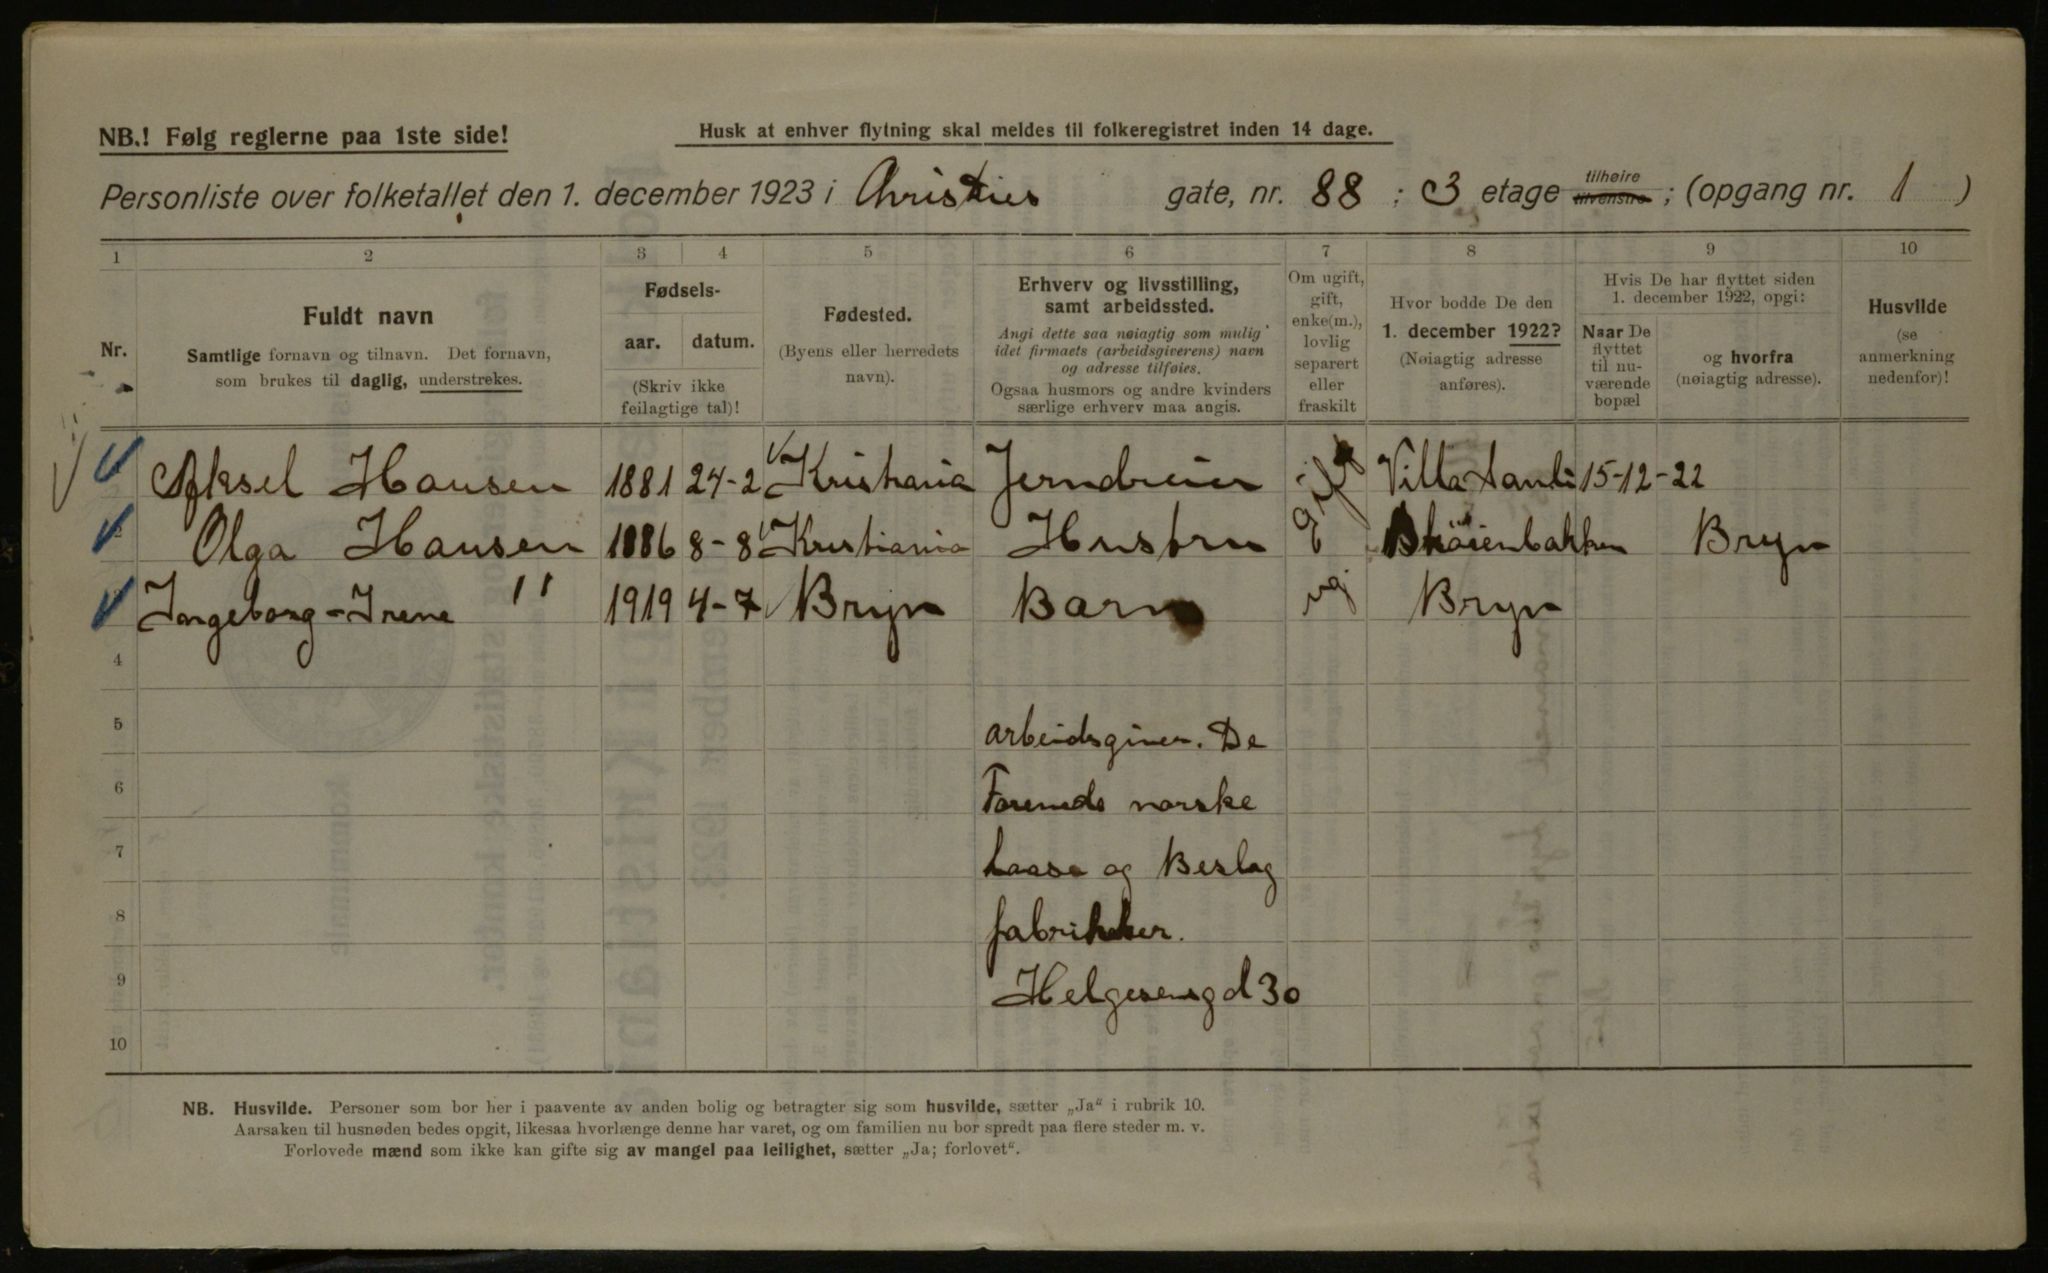 NB.! Følg reglerne paa 1ste side!
Husk at enhver flytning skal meldes til folkeregistret inden 14 dage.
Personliste over folketallet den 1. december 1923 i Christies gate, nr. 88 ; 3 etage tilhøire tilvenstre ; (opgang nr. 1 )
1 2 3 4 5 6 7 8 9 10
Nr.
Fuldt navn
Samtlige fornavn og tilnavn. Det fornavn,
som brukes til daglig, understrekes.
Fødsels-
aar. datum.
(Skriv ikke
feilagtige tal)!
Fødested.
(Byens eller herredets
navn).
Erhverv og livsstilling,
samt arbeidssted.
Angi dette saa nøiagtig som mulig
idet firmaets (arbeidsgiverens) navn
og adresse tilføies.
Ogsaa husmors og andre kvinders
særlige erhverv maa angis.
Om ugift,
gift,
enke(m.),
lovlig
separert
eller
fraskilt
Hvor bodde De den
1. december 1922?
(Nøiagtig adresse
anføres).
Hvis De har flyttet siden
1. december 1922, opgi:
Naar De
flyttet
til nu-
værende
bopæl
og hvorfra
(nøiagtig adresse).
Husvilde
(se
anmerkning
nedenfor)!
Aksel Hansen 1881 24-2 Kristiania Jerndreier gift Villa 15-12-22
2 Olga Hansen 1886 8-8 Kristiania Hustru g Bryn
Ingeborg-Irene " 1919 4-7 Bryn Barn ug Bryn
4
5 arbeidsgiver. De
6 Forenede norske
7 laase og Beslag
8 fabrikker.
9 Helgesensgd 30
10
NB. Husvilde. Personer som bor her i paavente av anden bolig og betragter sig som husvilde, sætter „Ja“ i rubrik 10.
Aarsaken til husnøden bedes opgit, likesaa hvorlænge denne har varet, og om familien nu bor spredt paa flere steder m. v.
Forlovede mænd som ikke kan gifte sig av mangel paa leilighet, sætter „Ja; forlovet“.